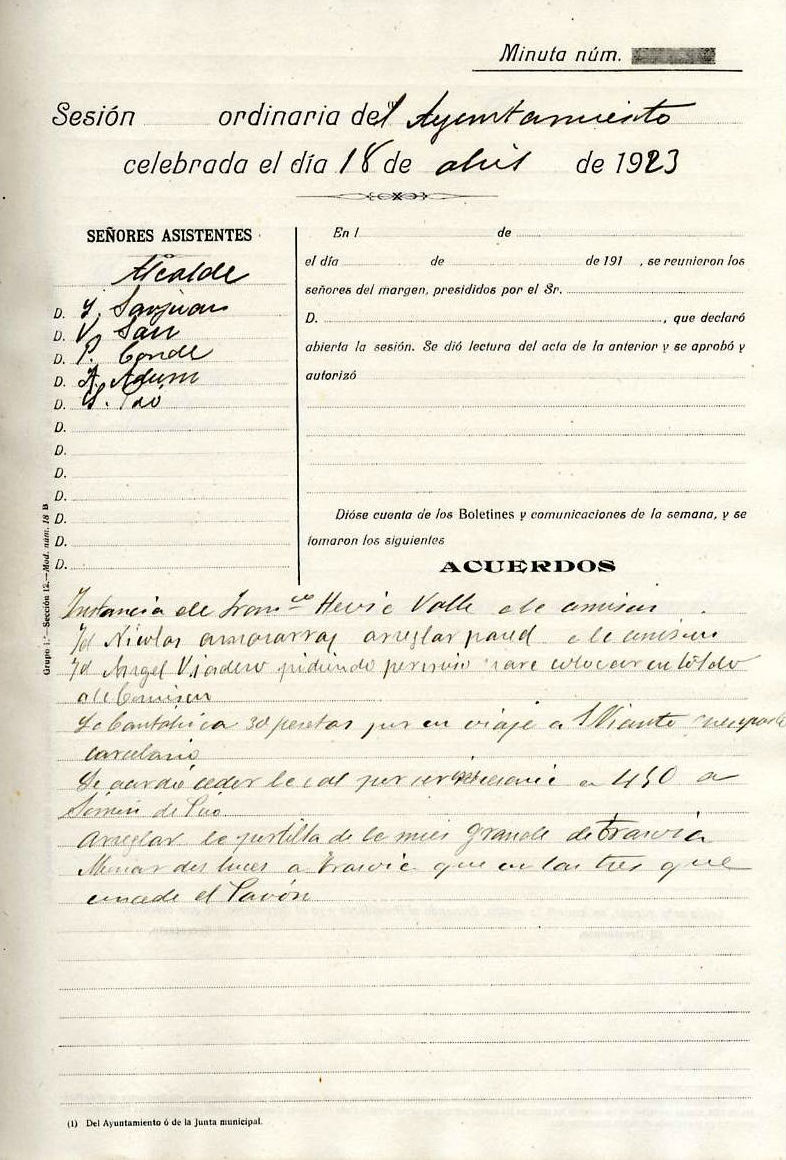 Minuta núm.
Sesión ordinaria del (1) Ayuntamiento
celebrada el día 18 de abril de 1923
SEÑORES ASISTENTES
Alcalde
D. 
D. V.
D. P. Conde
D. A.
D. 
D.
D.
D.
D.
D.
D.
D.
En l de
el día de de 191 , se reunieron los
señores del margen, presididos por el Sr.
D. , que declaró
abierta la sesión. Se dió lectura del acta de la anterior y se aprobó y
autorizó
Dióse cuenta de los Boletines y comunicaciones de la semana, y se
tomaron los siguientes
ACUERDOS
Instancia de Franco Valle a la comision
Id Nicolas arreglar pared a la comision
Id Angel pidiendo permiso para colocar un toldo
a la Comision
La Cantabrica 30 pesetas por un viaje a S Vicente
carcelario
Se acordó ceder local por a 450 a
de
arreglar la portilla de la mies grande de Trasvia
dos luces a Trasvia que en las tres que
el Pavón
Grupo 1.º—Sección 12.—Mod. núm. 18 B
(1) Del Ayuntamiento ó de la Junta municipal.